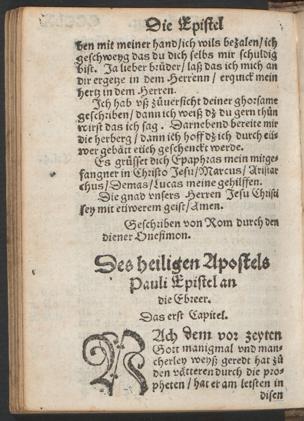 Die Epistel
ben mit meiner hand/ich wils bezalen/ich
geschweyg das du dich selbs mir schuldig
bist. Ja lieber brüder/laß das ich mich an
dir ergetze in dem Herrenn/erquick mein
hertz in dem Herren.
Ich hab vß züuersicht deiner ghorsame
geschriben/dann ich weiß dz du gern thün
wirst das ich sag. Darnebend bereite mir
die herberg/dann ich hoff dz ich durch eü=
wer gebätt eüch geschenckt werde.
Es grüsset dich Epaphras mein mitge=
fangner in Christo Jesu/Marcus/Aristar
chus/Demas/Lucas meine gehilffen.
Die gnad vnsers Herren Jesu Christi
sey mit eüwerem geist/Amen.
Geschriben von Rom durch den
diener Onesimon.
Des heiligen Apostels
Pauli Epistel an
die Ebreer.
Das erst Capitel.
NAch dem vor zeyten
Gott manigmal vnd man=
cherley weyß geredt hat zü
den vätteren durch die pro=
pheten/hat er am letsten in
disen